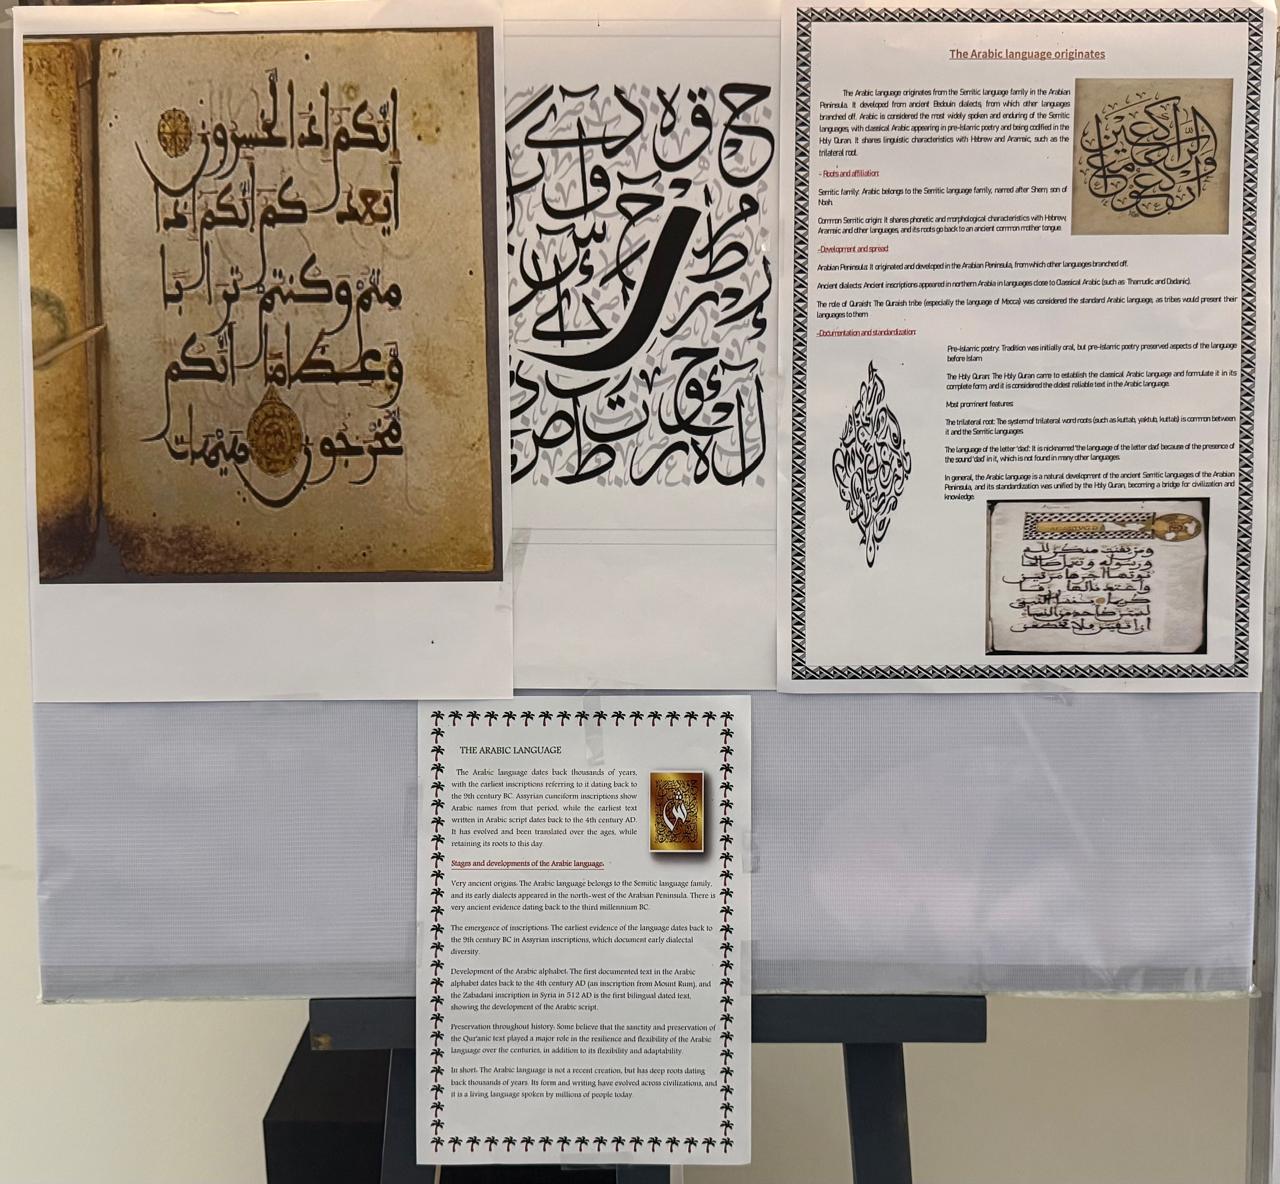 انكم اذا لخسرون
ايعدكم انكم اذا
متم وكنتم ترابا
وعظاما انكم
مخرجون هيهات
The Arabic language originates
The Arabic language originates from the Semitic language family in the Arabian
Peninsula. It developed from ancient Bedouin dialects, from which other languages
branched off. Arabic is considered the most widely spoken and enduring of the Semitic
languages, with classical Arabic appearing in pre-Islamic poetry and being codified in the
Holy Quran. It shares linguistic characteristics with Hebrew and Aramaic, such as the
trilateral root.
- Roots and affiliation:
Semitic family: Arabic belongs to the Semitic language family, named after Shem, son of
Noah.
Common Semitic origin: It shares phonetic and morphological characteristics with Hebrew,
Aramaic and other languages, and its roots go back to an ancient common mother tongue.
-Development and spread:
Arabian Peninsula: It originated and developed in the Arabian Peninsula, from which other languages branched off.
Ancient dialects: Ancient inscriptions appeared in northern Arabia in languages close to Classical Arabic (such as Thamudic and Dadanic).
The role of Quraish: The Quraish tribe (especially the language of Mecca) was considered the standard Arabic language, as tribes would present their
languages to them
-Documentation and standardization:
Pre-Islamic poetry: Tradition was initially oral, but pre-Islamic poetry preserved aspects of the language
before Islam
The Holy Quran: The Holy Quran came to establish the classical Arabic language and formulate it in its
complete form, and it is considered the oldest reliable text in the Arabic language.
Most prominent features:
The trilateral root: The system of trilateral word roots (such as kuttab, yaktub, kuttab) is common between
it and the Semitic languages
The language of the letter 'dad': It is nicknamed 'the language of the letter dad' because of the presence of
the sound 'dad' in it, which is not found in many other languages.
In general, the Arabic language is a natural development of the ancient Semitic languages of the Arabian
Peninsula, and its standardization was unified by the Holy Quran, becoming a bridge for civilization and
knowledge.
ومن يقنت منكن لله
ورسوله وتعمل صالحا
نوتها اجرها مرتين
واعتدنا لها رزقا
كريما ينسا النبي
لستن كاحد من النسا
ان اتقيتن فلا تخضعن
THE ARABIC LANGUAGE
The Arabic language dates back thousands of years,
with the earliest inscriptions referring to it dating back to
the 9th century BC. Assyrian cuneiform inscriptions show
Arabic names from that period, while the earliest text
written in Arabic script dates back to the 4th century AD.
It has evolved and been translated over the ages, while
retaining its roots to this day.
Stages and developments of the Arabic language.
Very ancient origins: The Arabic language belongs to the Semitic language family,
and its early dialects appeared in the north-west of the Arabian Peninsula. There is
very ancient evidence dating back to the third millennium BC.
The emergence of inscriptions: The earliest evidence of the language dates back to
the 9th century BC in Assyrian inscriptions, which document early dialectal
diversity.
Development of the Arabic alphabet: The first documented text in the Arabic
alphabet dates back to the 4th century AD (an inscription from Mount Rum), and
the Zabadani inscription in Syria in 512 AD is the first bilingual dated text,
showing the development of the Arabic script.
Preservation throughout history: Some believe that the sanctity and preservation of
the Qur'anic text played a major role in the resilience and flexibility of the Arabic
language over the centuries, in addition to its flexibility and adaptability.
In short: The Arabic language is not a recent creation, but has deep roots dating
back thousands of years. Its form and writing have evolved across civilizations, and
it is a living language spoken by millions of people today.